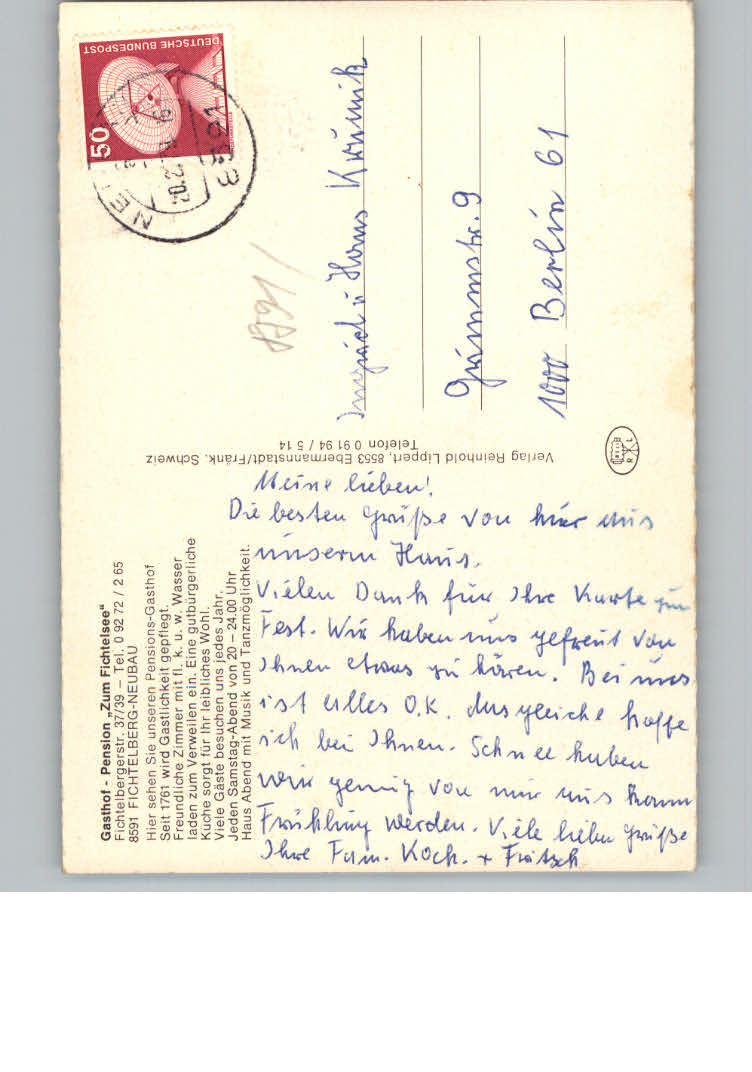 Gasthof - Pension „Zum Fichtelsee"
Fichtelbergerstr. 37/39 – Tel. 0 92 72 / 2 65
8591 FICHTELBERG-NEUBAU
Hier sehen Sie unseren Pensions-Gasthof
Seit 1761 wird Gastlichkeit gepflegt.
Freundliche Zimmer mit fl. k. u. w. Wasser
laden zum Verweilen ein. Eine gutbürgerliche
Küche sorgt für Ihr leibliches Wohl.
Viele Gäste besuchen uns jedes Jahr.
Jeden Samstag-Abend von 20 – 24.00 Uhr
Haus Abend mit Musik und Tanzmöglichkeit.
Meine lieben!
Die besten Grüße von hier aus
unserm Haus.
Vielen Dank für Ihre Karte zum
Fest. Wir haben uns gefreut von
Ihnen etwas zu hören. Bei uns
ist alles O.K. das gleiche hoffe
ich bei Ihnen. Schnee haben
wir genug von mir aus kann
Frühling werden. Viele liebe Grüße
Ihre Fam. Koch. + Fritsch
Verlag Reinhold Lippert, 8553 Ebermannstadt/Fränk. Schweiz
Telefon 0 91 94 / 5 14
R L
DEUTSCHE BUNDESPOST
50
8591
u. Hans
Grimmstr. 9
1000 Berlin 61